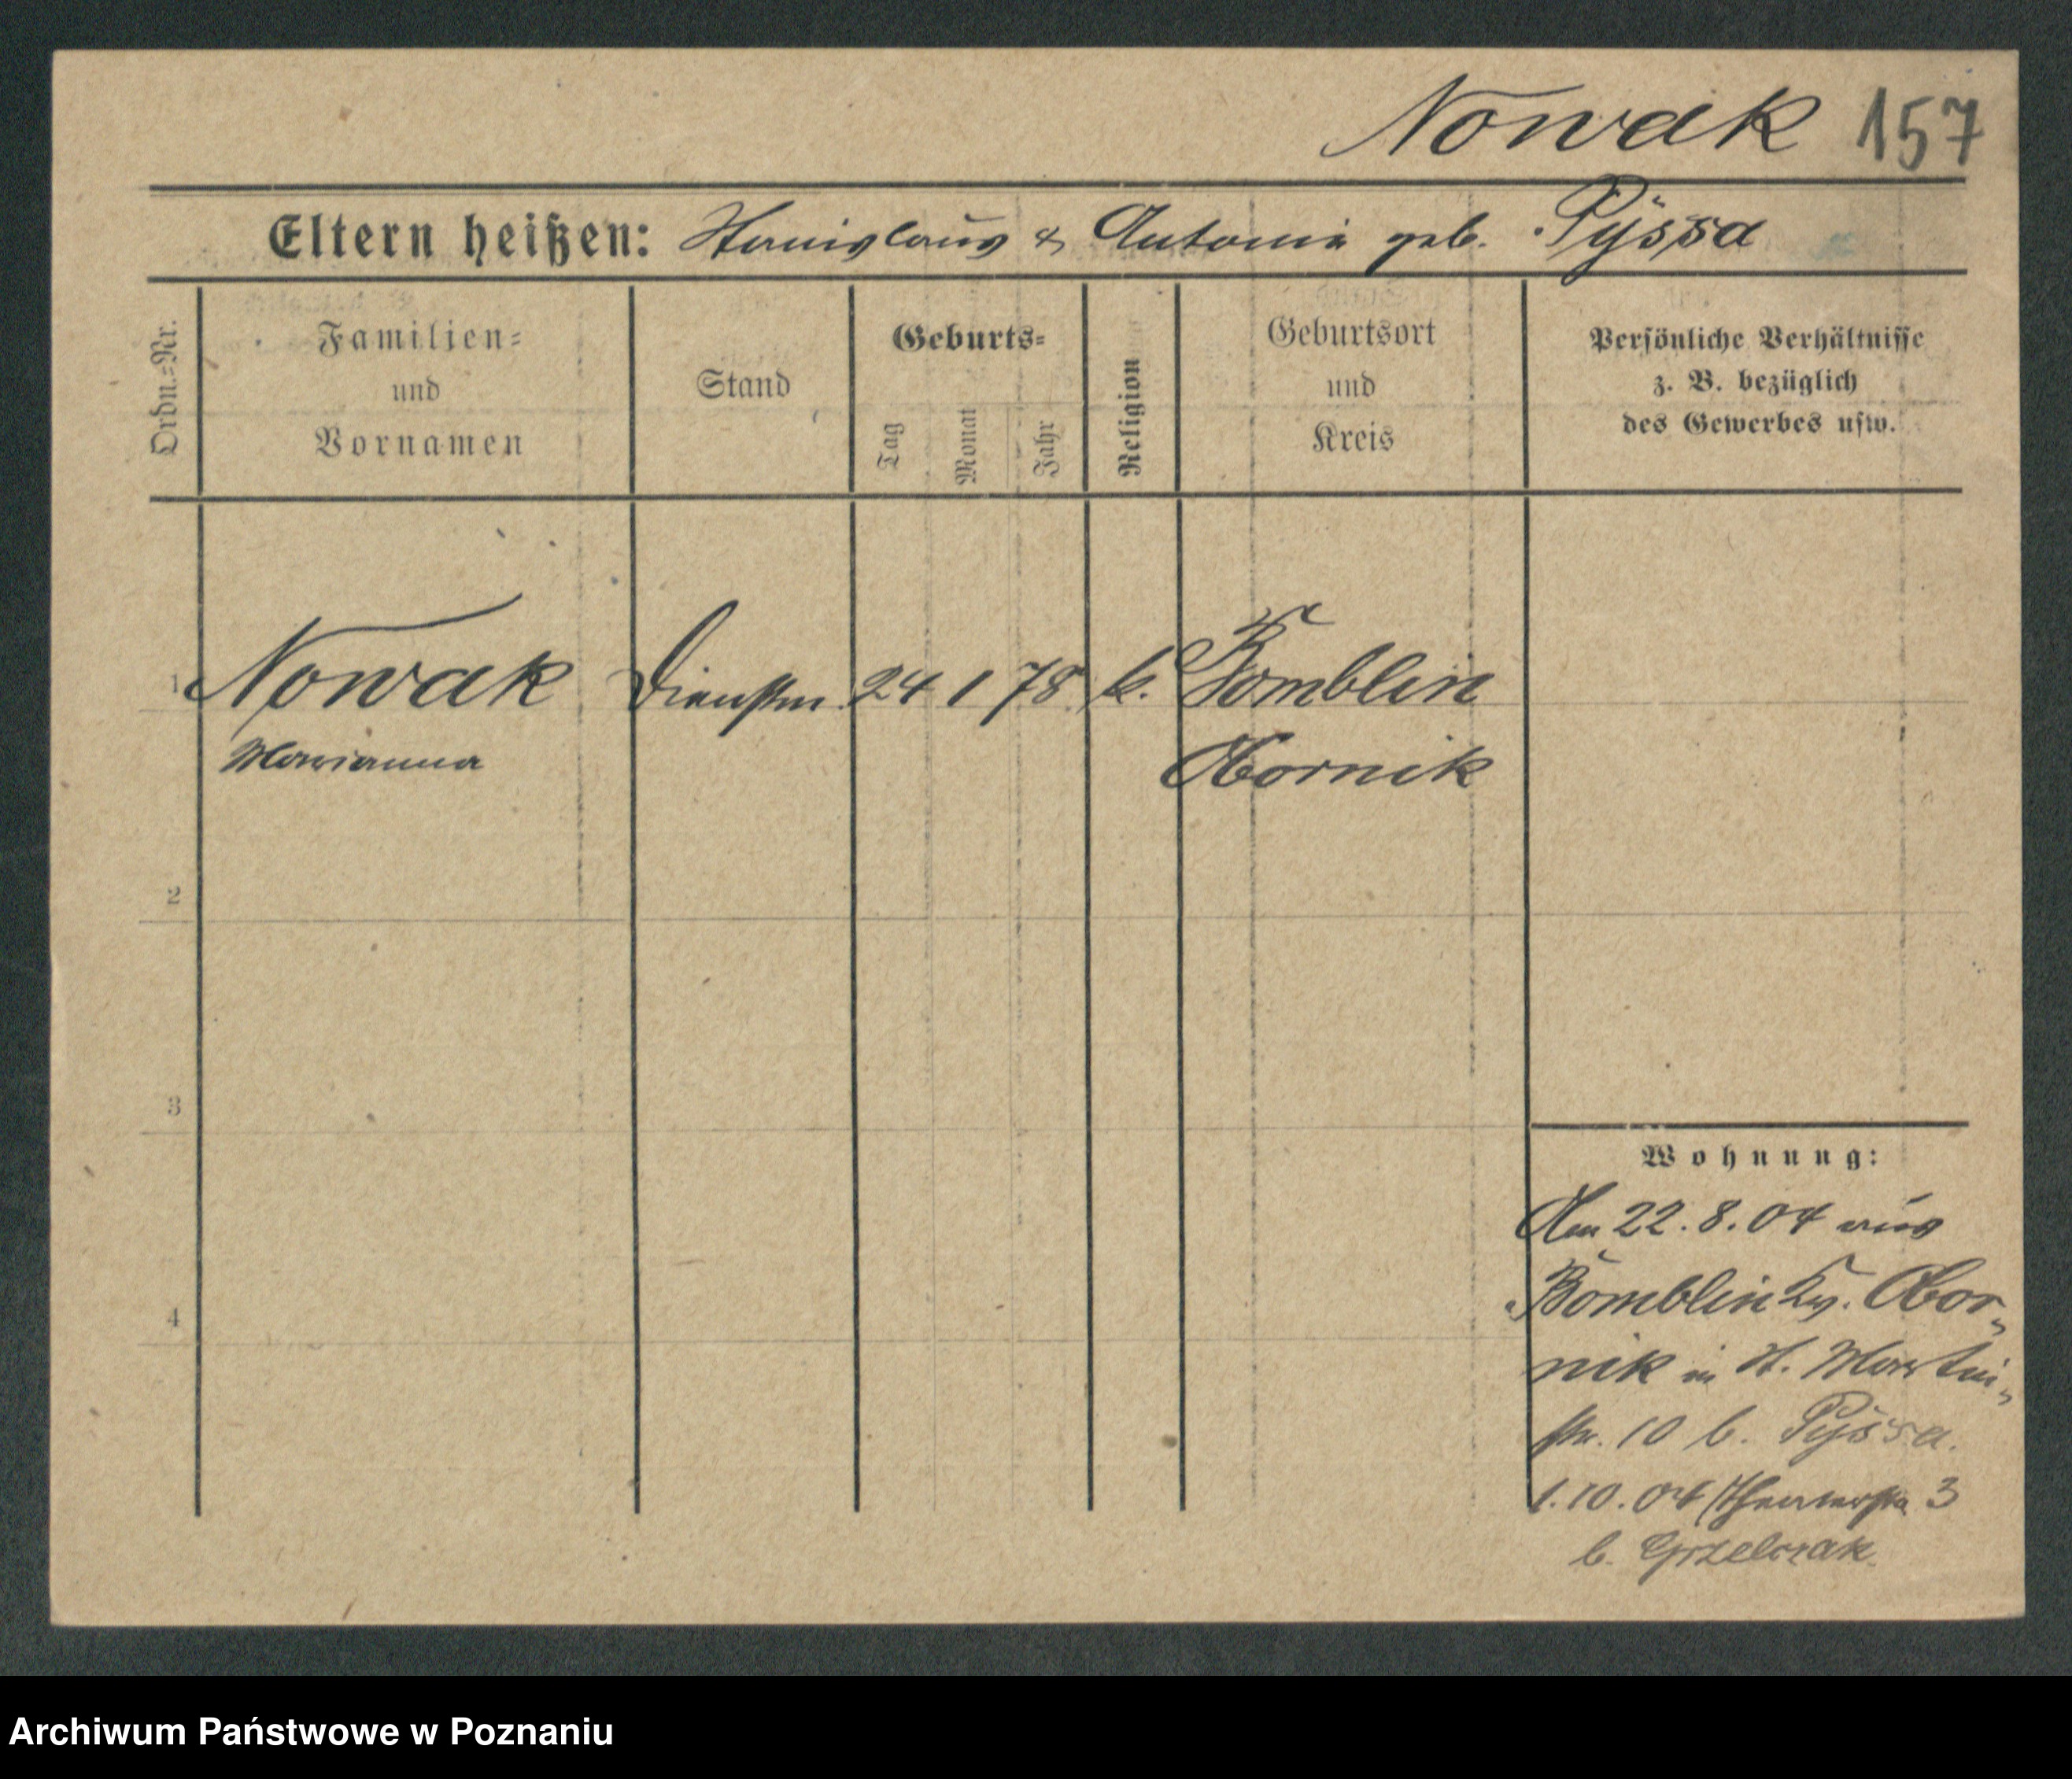 Nowak 157
Eltern heißen: Stanislaus & Antonia geb. Pyssa
Ordn.=Nr.
Familien=
und
Vornamen
Stand
Geburts=
Tag
Monat
Jahr
Religion
Geburtsort
und
Kreis
Persönliche Verhältnisse
z. B. bezüglich
des Gewerbes usw.
1 Nowak Dienstm. 24 1 78 k. Bomblin
Marianna Obornik
2
3
4
Wohnung:
Am 22.8.04 aus
Bomblin Kr. Obor-
nik in St. Martin-
str. 10 b. Pyssa.
1.10.04 Theaterstr. 3
b. Grzelczak
Archiwum Państwowe w Poznaniu